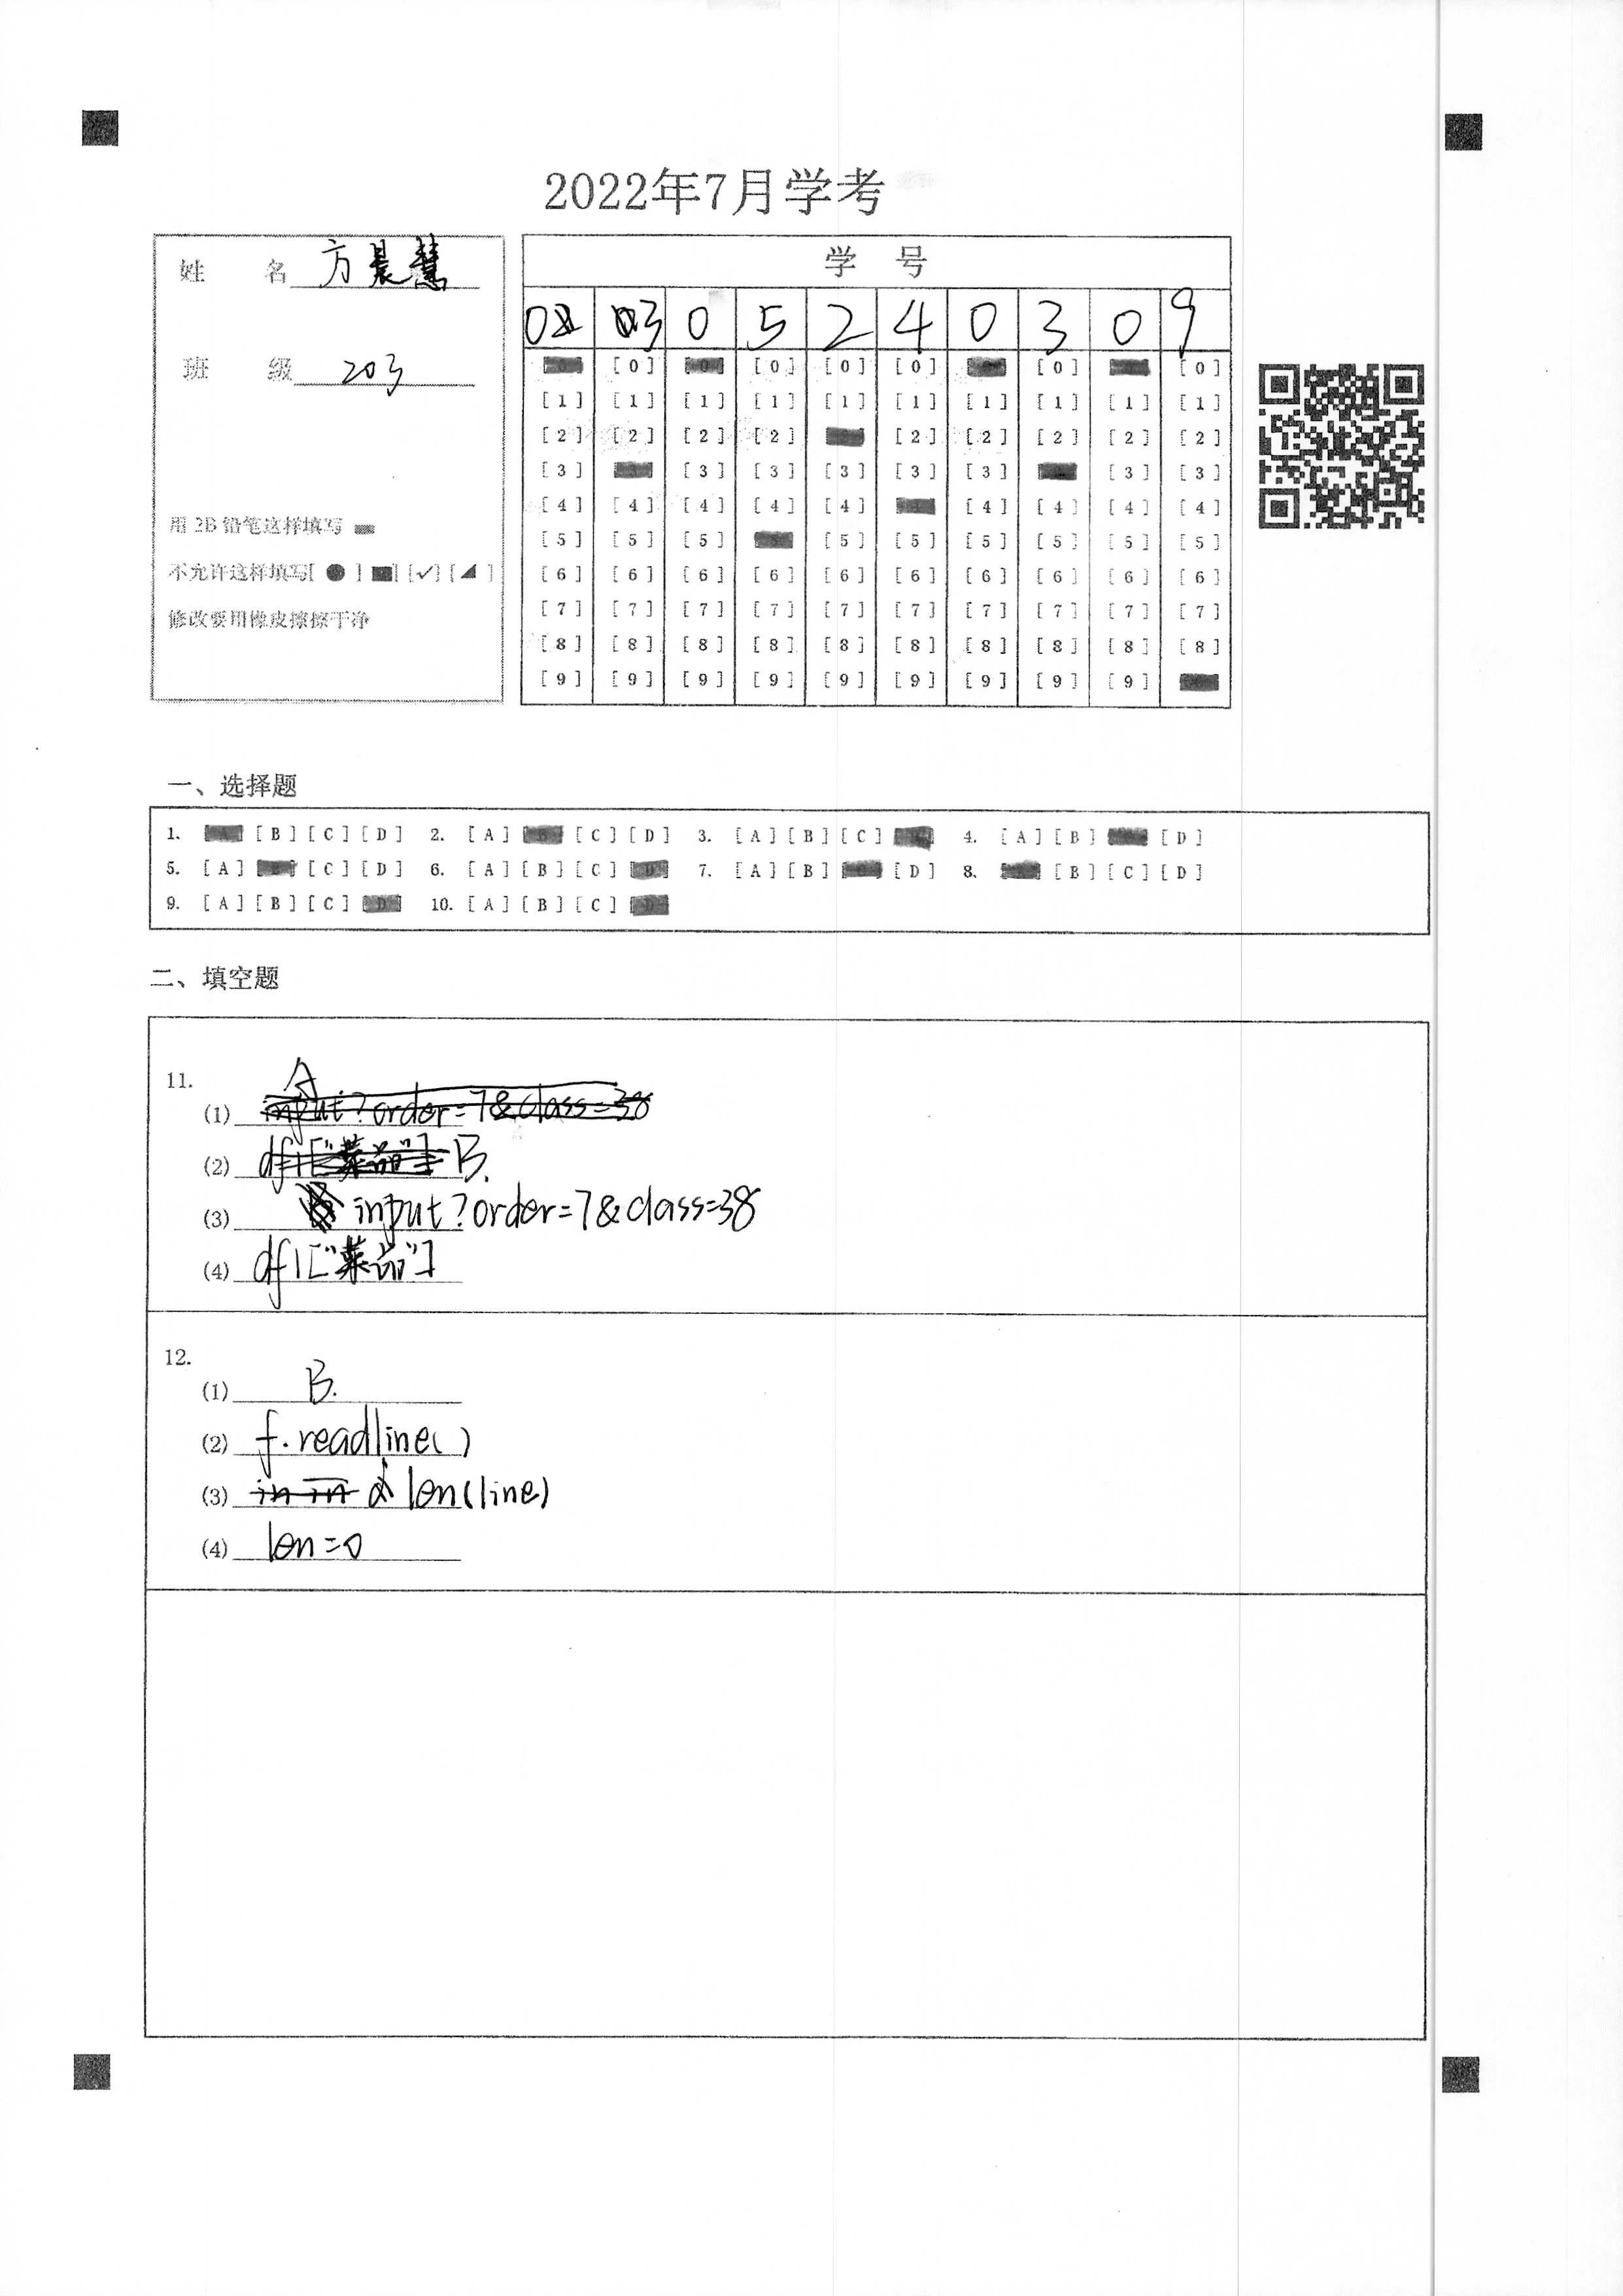 2022年7月学考
姓 名 方晨慧
班 级 203
用 2B 铅笔这样填写
不允许这样填写[ ● ] [■] [✓] [◢ ]
修改要用橡皮擦擦干净
学 号
0 3 0 5 2 4 0 3 0 9
[0] [0] [0] [0] [0] [0]
[1] [1] [1] [1] [1] [1] [1] [1] [1] [1]
[2] [2] [2] [2] [2] [2] [2] [2] [2]
[3] [3] [3] [3] [3] [3] [3] [3]
[4] [4] [4] [4] [4] [4] [4] [4] [4]
[5] [5] [5] [5] [5] [5] [5] [5] [5]
[6] [6] [6] [6] [6] [6] [6] [6] [6] [6]
[7] [7] [7] [7] [7] [7] [7] [7] [7] [7]
[8] [8] [8] [8] [8] [8] [8] [8] [8] [8]
[9] [9] [9] [9] [9] [9] [9] [9] [9]
一、选择题
1. [A] [B] [C] [D] 2. [A] [B] [C] [D] 3. [A] [B] [C] 4. [A] [B] [D]
5. [A] [C] [D] 6. [A] [B] [C] [D] 7. [A] [B] [C] [D] 8. [B] [C] [D]
9. [A] [B] [C] [D] 10. [A] [B] [C] [D]
二、填空题
11.
A
(1) input?order=7&class=38
(2) df1["菜品"] B.
(3) input?order=7&class=38
(4) df1["菜品"]
12.
(1) B.
(2) f.readline()
(3) in in len(line)
(4) len=0